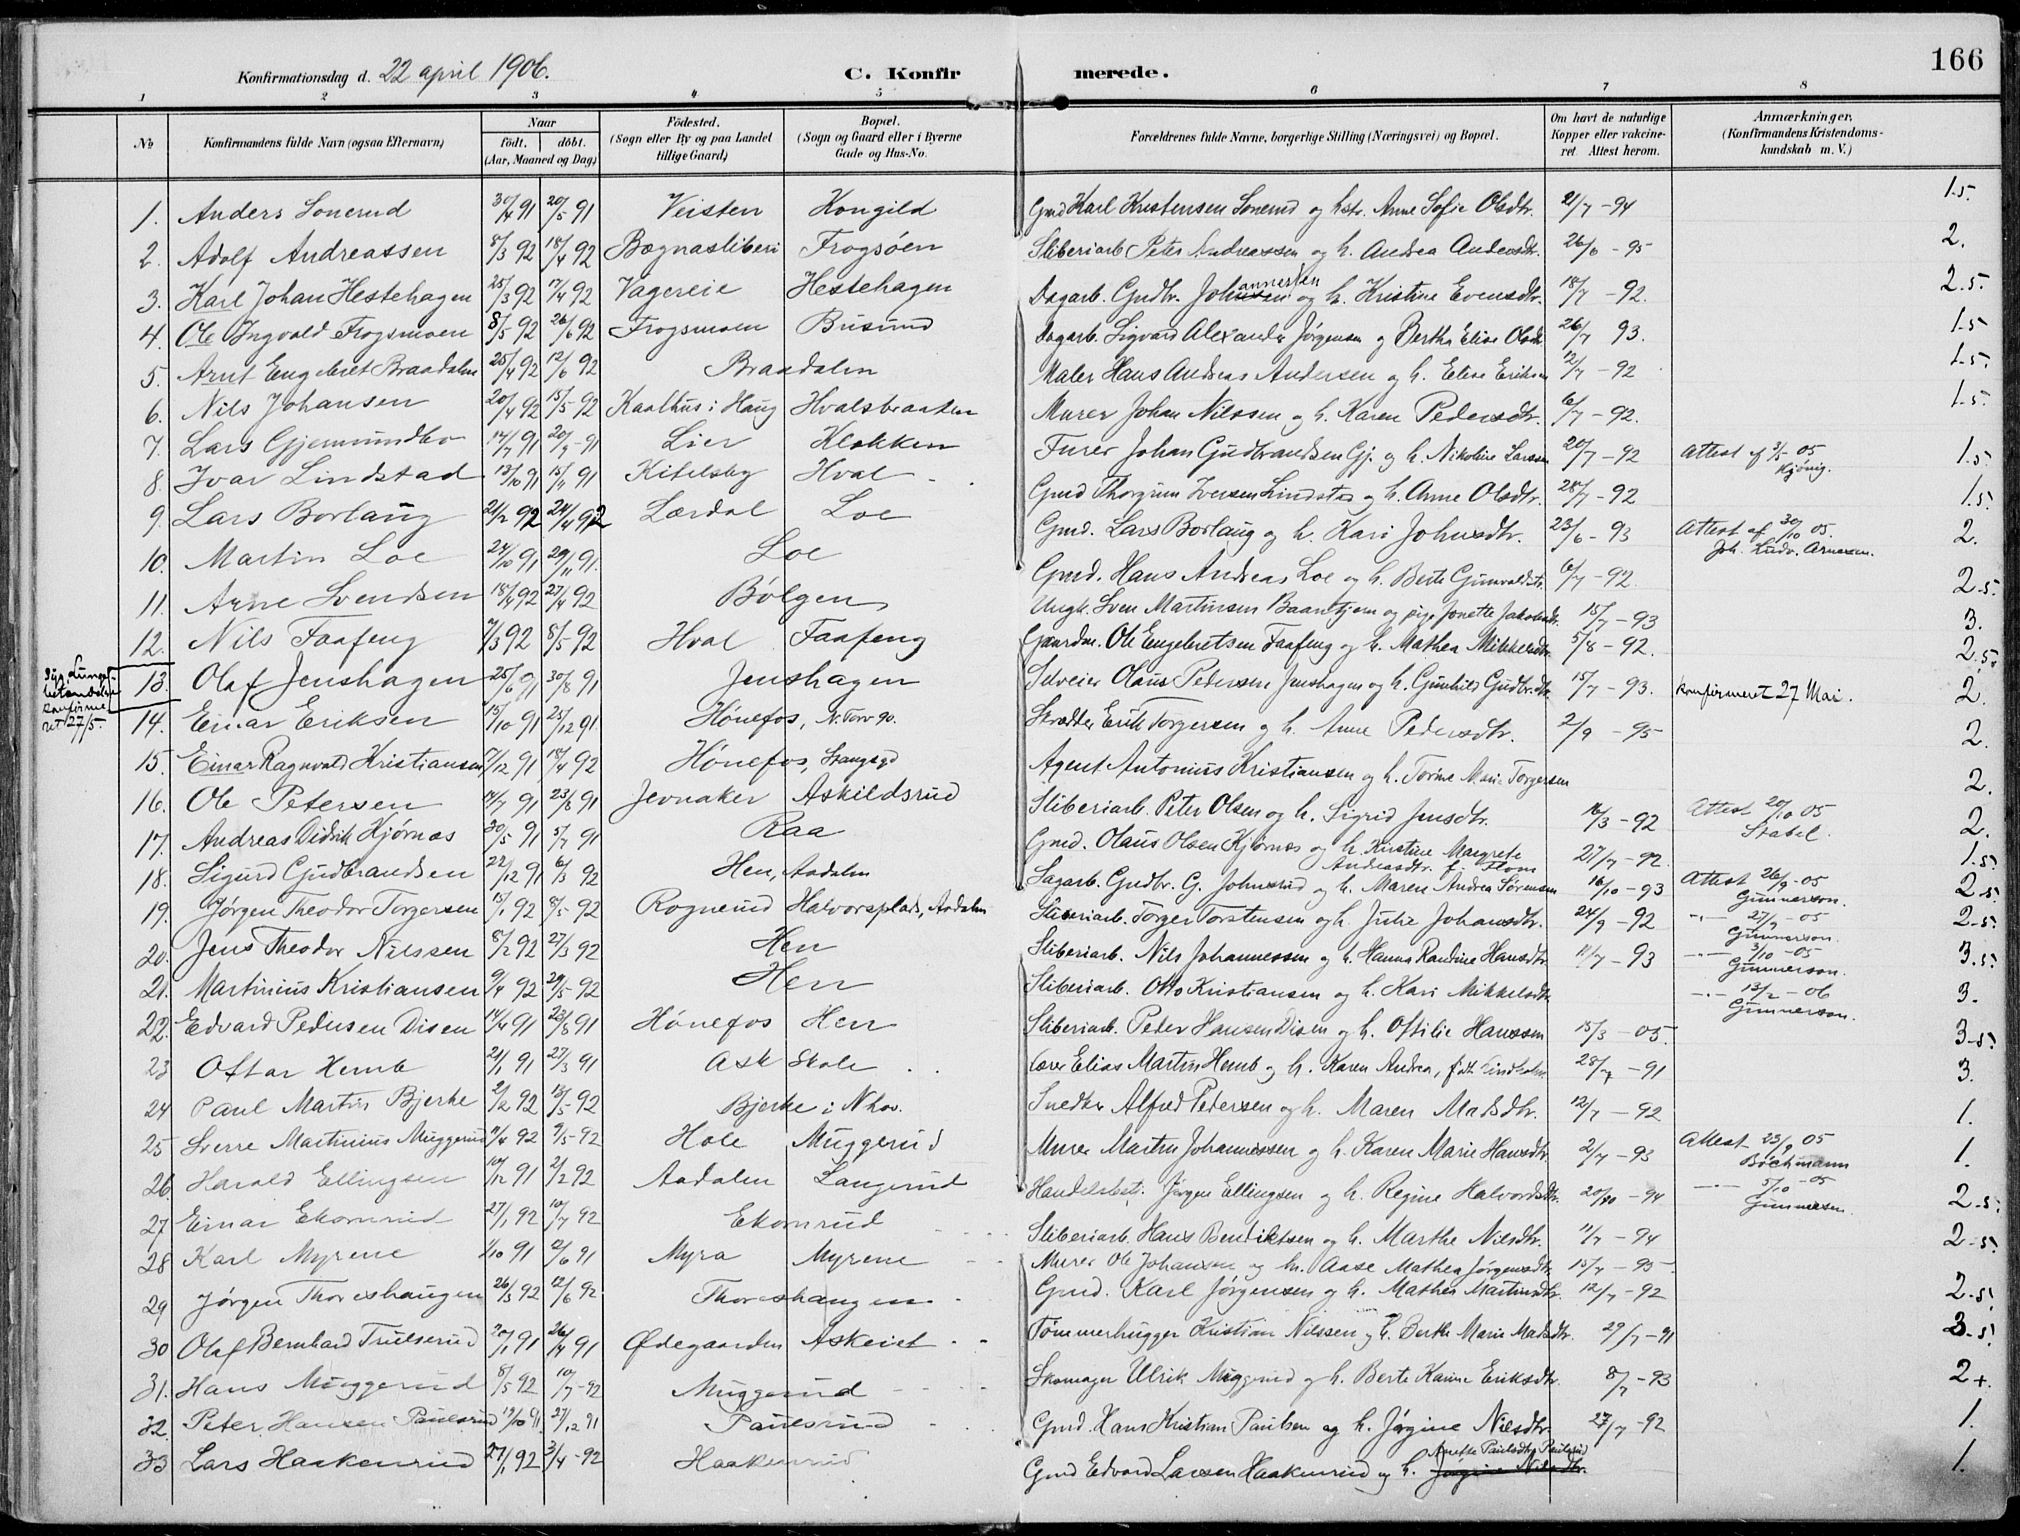 166
Konfirmationsdag d. 22 april 1906. C. Konfirmerede.
1 2 3 4 5 6 7 8
No Konfirmandens fulde Navn (ogsaa Efternavn) Naar født. døbt. (Aar, Maaned og Dag) Fødested. (Sogn eller By og paa Landet tillige Gaard) Bopæl. (Sogn og Gaard eller i Byerne Gade og Hus-No. Forældrenes fulde Navne, borgerlige Stilling (Næringsvei) og Bopæl. Om havt de naturlige Kopper eller vakcineret. Attest herom. Anmærkninger. (Konfirmandens Kristendomskundskab m. V.)
1. Anders Sonerud 30/4 91 20/5 91 Veisten Kongild Gmd Karl Kristensen Sonerud og hstr. Anne Sofie Olsdtr. 21/7 - 94 1.5.
2. Adolf Andreassen 8/3 92 18/4 92 Bægnasliberi Frogsøen Sliberiarb. Peter Andreassen og h. Andrea Andersdtr. 26/6 - 95 2.
3. Karl Johan Hestehagen 25/3 92 17/4 92 Vagereie Hestehagen Dagarb. Gudbr. Johannesen og h. Kristine Evensdtr. 18/7 - 92. 2.5.
4. Ole Ingvald Frogsmoen 8/5 92 26/6 92 Frogsmoen Busund Dagarb. Sigvard Alexander Jørgensen og Bertha Elise Olsdtr. 26/7 93. 1.5
5. Arnt Engebret Braadalen 25/4 92 12/6 92 Braadalen Maler Hans Andreas Andersen og h. Elise Eriksen 12/7 - 92 1.5.
6. Nils Johansen 20/4 92 15/5 - 92 Kaalhus i Haug Hvalsbraaten Murer Johan Nilssen og h. Karen Pedersdtr. 6/7 - 92. 1.5.
7. Lars Gjermundbo 14/7 91 20/9 - 91 Lier Klækken Furer Johan Gudbrandsen Gj. og h. Nikoline Larssen 20/7 - 92 Attest af 3/5 05 Kjönig. 1.5.
8. Ivar Lindstad 13/10 91 15/11 91 Kitelsby Hval Gmd Thorgrim Iversen Lindstad og h. Anne Olsdtr. 28/7 - 92 1.5.
9. Lars Borlaug 21/2 92 24/4 92 Lærdal Loe Gmd. Lars Borlaug og h. Kari Johnsdtr. 23/6 - 93 Attest af 30/10 05. Joh. Ludv. Arnesen. 2.
10. Martin Loe 24/10 91 29/11 91. Loe Gmd. Hans Andreas Loe og h. Berte Gunvaldsdtr. 6/7 - 92. 2.5.
11. Arne Svendsen 18/4 92 27/4 92 Bølgen Ungk. Sven Martinsen Baarntjern og pige Jonette Jakobsdtr. 15/7 - 93 3.
12. Nils Faafeng 7/3 92 8/5 92 Hval Faafeng Gaardm. Ole Engebretsen Faafeng og h. Mathea Mikkelsdtr. 5/8 - 92. 2.5.
Syg, Lungebetændelse konfirmeret 27/5. 13. Olaf Jenshagen 25/6 91 30/8 91 Jenshagen Selveier Olaus Pedersen Jenshagen og h. Gunhild Gudbr.dtr. 15/7 - 93. konfirmeret 27 Mai. 2.
14. Einar Eriksen 15/10 91 25/12 91. Hønefos, N. Torv 90. Skrædder Erik Torgersen og h. Anne Pedersdtr. 2/9 - 95 2.
15. Einar Ragnvald Kristiansen 17/12 91 18/4 92 Hønefos, Stangsgd Agent Antonius Kristiansen og h. Torine Marie Torgersen 2.
16. Ole Petersen 14/7 91 23/8 91 Jevnaker Askildsrud Sliberiarb. Peter Olsen og h. Sigrid Jensdtr. 16/3 - 92 Attest 20/10 05 Stabel. 2.
17. Andreas Didrik Kjørnæs 30/5 91 5/7 91 Raa Gmd. Olaus Olsen Kjørnæs og h. Kristine Margrete Andreasdtr. f. Flom 27/7 - 92. 1.5.
18. Sigurd Gudbrandsen 22/12 91 6/3 92 Hen, Aadalen Sagarb. Gudbr. G. Johnsrud og h. Maren Andrea Sørensen 16/10 - 93 Attest 26/9 - 05 Gunnerson. 2.5.
19. Jørgen Theodor Torgersen 15/1 92 8/5 - 92 Rognerud Halvorsplads, Aadalen Sliberiarb. Torger Torstensen og h. Julie Johansdtr. 24/9 - 92 -"- 27/9 - 05 Gunnerson. 2.5.
20. Jens Theodor Nilssen 8/2 92 27/3 92 Hen Sliberiarb. Nils Johannessen og h. Hanna Randine Hansdtr. 11/7 - 93 -"- 3/10 - 05 Gunnerson. 3.5.
21. Martinius Kristiansen 9/4 92 29/5 - 92 Hen Sliberiarb. Otto Kristiansen og h. Kari Mikkelsdtr. -"- 13/2 - 06 Gunnerson. 3.
22. Edvard Pedersen Disen 14/4 91 23/8 91 Hønefos Hen Sliberiarb. Peder Hansen Disen og h. Ottilie Hanssen 15/3 - 05. 3.5.
23 Oftar Hemb 21/1 91 27/3 91 Ask Skole Lærer Elias Martin Hemb og h. Karen Andrea, født Lindholm 28/7 - 91 3.
24 Paul Martin Bjerke 2/2 92 15/5 - 92 Bjerke i Nhov. Snedker Alfred Pedersen og h. Maren Madsdtr. 12/7 - 92 1.
25 Sverre Martinius Muggerud 11/4 92 9/5 - 92 Hole Muggerud Murer Martin Johannessen og h. Karen Marie Hansdtr. 2/7 - 93 Attest 23/9 05 Böchmann 1.
26 Harald Ellingsen 10/12 91 21/2 92 Aadalen Langerud Handelsbest. Jørgen Ellingsen og h. Regine Halvordsdtr. 20/10 - 94 -"- 5/10 - 05 Gunnersen. 2.5.
27 Einar Ekornrud 27/1 92 10/7 92 Ekornrud Sliberiarb. Hans Bendiktsen og h. Marthe Nilsdtr. 11/7 - 94 2.5.
28 Karl Myrene 1/10 91 12/6 91 Myra Myrene Murer Ole Johansen og h. Aase Mathea Jørgensdtr. 15/7 - 95
29 Jørgen Thoreshaugen 26/3 92 12/6 92 Thoreshaugen Gmd. Karl Jørgensen og h. Mathea Martinsdtr. 12/7 - 92 2.5.
30 Olaf Bernhard Trulserud 20/1 91 26/4 91 Ødegaarden Askeiet Tømmerhugger Kristian Nilssen og h. Berthe Marie Madsdtr. 29/7 - 91 3.5.
31. Hans Muggerud 8/5 92 10/7 - 92 Muggerud Skomager Ulrik Muggerud og h. Berte Karine Eriksdtr. 8/7 - 93 2+.
32. Peter Hansen Paulsrud 19/10 91 27/12 91 Paulsrud Gmd. Hans Kristian Paulsen og h. Jørgine Nilsdtr. 27/7 - 92 1.
33 Lars Haakenrud 27/1 92 3/4 - 92 Haakenrud Gmd Edvard Larsen Haakenrud og h. Anette Paulsdtr. Paulsrud Jørgine Nilsdtr. 1.